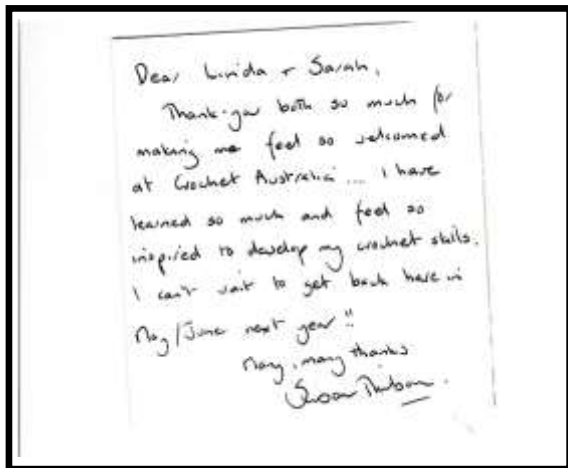 Dear Linda + Sarah,
Thank-you both so much for
making me feel so welcomed
at Crochet Australia ... I have
learned so much and feel so
inspired to develop my crochet skills.
I can't wait to get back here in
May/June next year !!
Many, many thanks
Susan